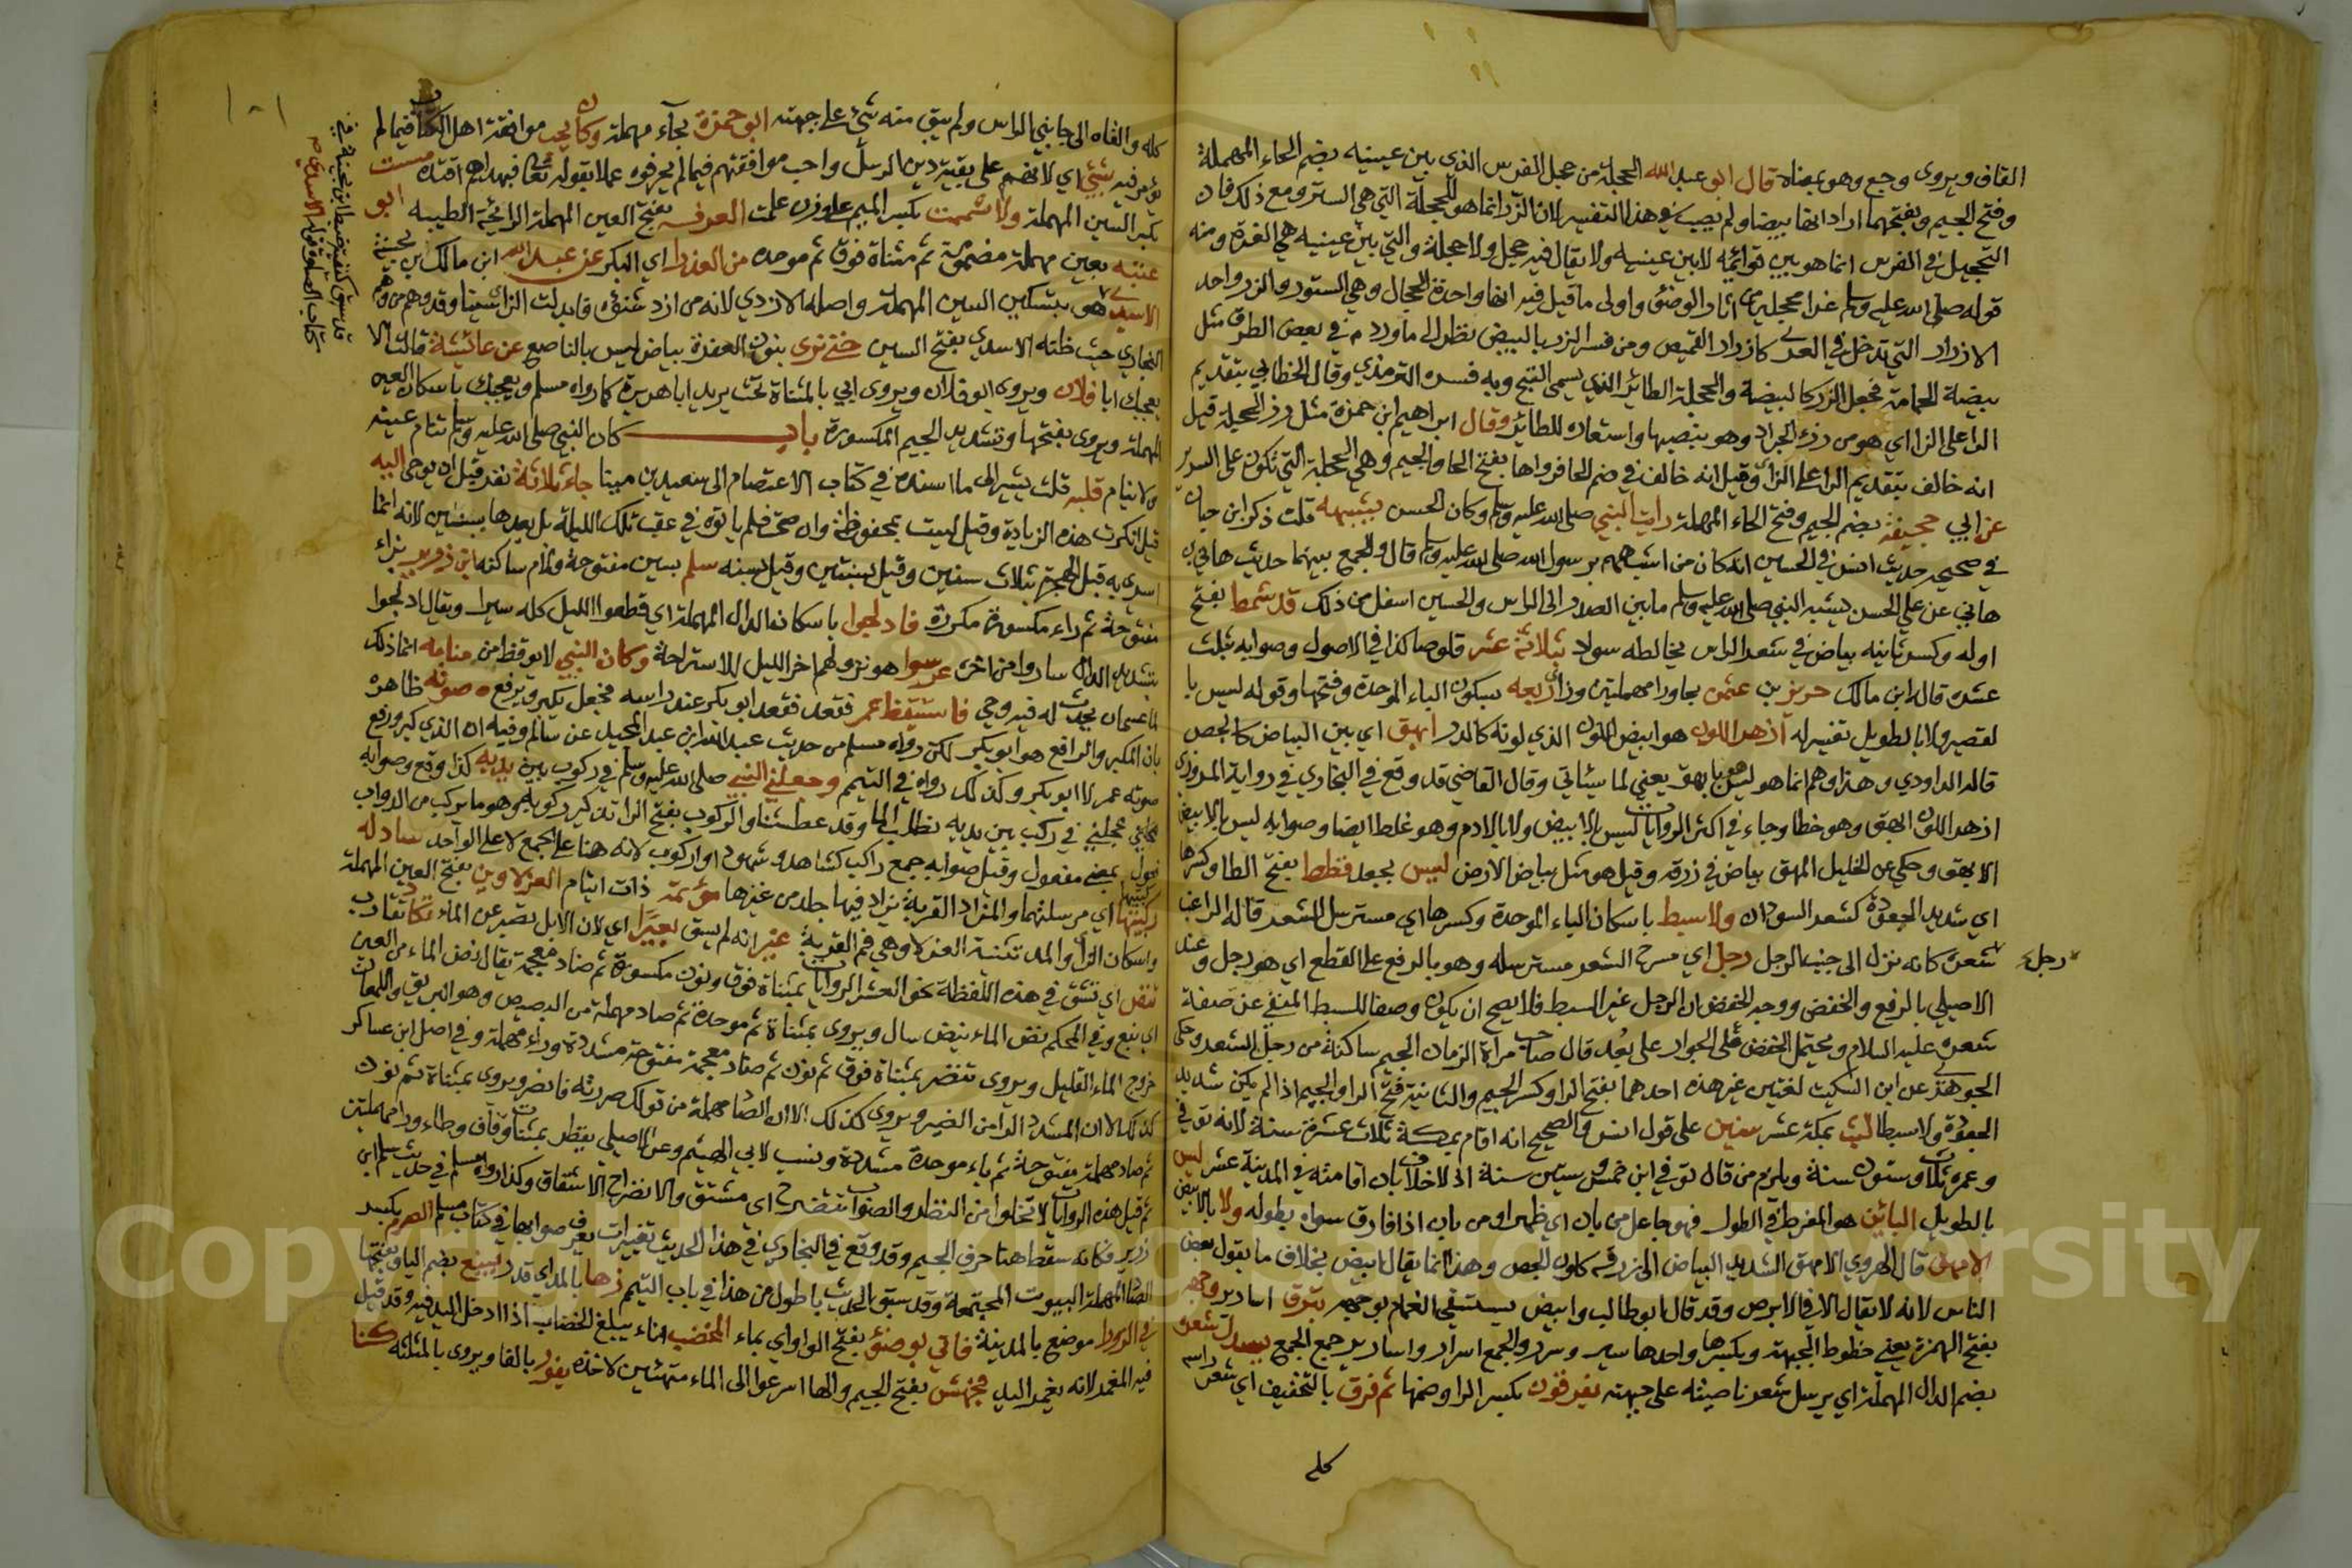 القاف ويروى وجع وهو بمعناه قال ابو عبد الله الحجلة من حجل الفرس الذي بين عينيه بضم الحاء المهملة
وفتح الجيم وبفتحهما اراد انها بيضا ولم يصب في هذا التفسير لان الزر انما هو للحجلة التي هي الستر ومع ذلك فان
التحجيل في الفرس انما هو بين قوائمه لا بين عينيه ولا يقال فيه حجل ولا حجلة والتي بين عينيه هي الغرة ومنه
قوله صلى الله عليه وسلم غرا محجلين من اثار الوضوء واولى ما قيل فيه انها واحدة الحجال وهي الستور والزر واحد
الازرار التي تدخل في العرى كازرار القميص ومن فسر الزر بالبيض نظر الى ما ورد في بعض الطرق مثل
بيضة الحمامة فجعل الزر كالبيضة والحجلة الطائر الذي يسمى القبج وبه فسره الترمذي وقال الخطابي بتقديم
الرا على الزا اي هو من رزء الجراد وهو بيضها واستعاره للطائر وقال ابراهيم ابن حمزة مثل رز الحجلة قيل
انه خالف بتقديم الرا على الزاى وقيل انه خالف في ضم الحا فرواها بفتح الحا والجيم وهي الحجلة التي تكون على السرير
عن ابي جحيفة بضم الجيم وفتح الحاء المهملة رايت النبي صلى الله عليه وسلم وكان الحسن يشبهه قلت ذكر ابن حبان
في صحيحه حديث انس في الحسين انه كان من اشبههم برسول الله صلى الله عليه وسلم قال والجمع بينهما حديث هاني بن
هاني عن علي الحسن يشبه النبي صلى الله عليه وسلم ما بين الصدر الى الراس والحسين اسفل من ذلك قد شمط بفتح
اوله وكسر ثانيه بياض في شعر الراس يخالطه سواد بثلاثة عشر قلوصا كذا في الاصول وصوابه بثلث
عشرة قاله ابن مالك حريز بن عثمن بحا ورا مهملتين وزاى ربعه بسكون الباء الموحدة وفتحها وقوله ليس با
لقصير ولا بالطويل تفسير له ازهر اللون هو ابيض اللون الذي لونه كالدر ابهق اي بين البياض كالجص
قاله الداودي وهذا وهم انما هو ليس بابهق يعني لما سياتي وقال القاضي قد وقع في البخاري في رواية المروزي
ازهر اللون ابهق وهو خطا وجاء في اكثر الروايات ليس بالابيض ولا بالادم وهو غلط ايضا وصوابه ليس بالابيض
الابهق وحكي عن الخليل المهق بياض في زرقه وقيل هو مثل بياض الارض ليس بجعد قطط بفتح الطا وكسرها
اي شديد الجعودة كشعر السودان ولا سبط باسكان الباء الموحدة وكسرها اي مسترسل الشعر قاله الراغب
شعره كانه نزل الى جنب الرجل رجل اي مسرح الشعر مسترسله وهو بالرفع على القطع اي هو رجل وعند
رجل
الاصيلي بالرفع والخفض ووجه الخفض ان الرجل غير السبط فلا يصح ان يكون وصفا للسبط المنفي عن صفة
شعره عليه السلام ويحتمل الخفض على الجوار على بُعد قال صاحب مراة الزمان الجيم ساكنة من رجل الشعر وحكى
الجوهري عن ابن السكيت لغتين غير هذه احدهما بفتح الرا وكسر الجيم والثانية فتح الرا والجيم اذا لم يكن شديد
الجعودة ولا سبطا لبث بمكة عشر سنين على قول انس والصحيح انه اقام بمكة ثلاث عشرة سنة لانه توفي
وعمره ثلاث وستون سنة ويلزم من قال توفي ابن خمس وستين سنة اذ لا خلاف بان اقامته في المدينة عشر ليس
بالطويل البائن هو المفرط في الطول فهو جاعل من بان اي ظهر او من بان اذا فارق سواه بطوله ولا بالابيض
الامهق قال الهروي الامهق الشديد البياض الى زرقه كلون الجص وهذا انما يقال ابيض بخلاف ما يقول بعض
الناس لانه لا يقال الا في الابرص وقد قال ابو طالب وابيض يستسقى الغمام بوجهه تبرق اسارير وجهه
بفتح الهمزة يعني خطوط الجبهة وبكسرها واحدها سر وسرر والجمع اسرار واسارير جمع الجمع يسدل شعره
بضم الدال المهملة اي يرسل شعر ناصيته على جبهته يفرقون بكسر الرا وضمها ثم فرق بالتخفيف اي شعر راسه
كله
كله والقاه الى جانبي الراس ولم يبق منه شئ على جبهته ابو حمزة بحاء مهملة وكان يحب موافقة اهل الكتاب فيما لم
يؤمر فيه بشئ اي لانهم على بقية دين الرسل واحب موافقتهم فيما لم يحرفوه عملا بقوله تعالى فبهداهم اقتده مسست
بكسر السين المهملة ولا شممت بكسر الميم على وزن علمت العرف بفتح العين المهملة الرائحة الطيبه ابو
عتبه بعين مهملة مضمومة ثم مثناة فوق ثم موحدة من العذرا اي البكر عن عبد الله ابن مالك بن بحينة
الاسدي هو بتسكين السين المهملة واصله الازدي لانه من ازد شنوءه فابدلت الزاى سينا وقد وهم من وهم
البخاري حيث ظنه الاسدي بفتح السين حتى نرى بنون العفرة بياض ليس بالناصع عن عائشة قالت الا
يعجبك ابا فلان ويروى ابو فلان ويروى ابي بالمثناة تحت يريد ابا هريرة كما رواه مسلم ويعجبك باسكان العين
المهملة ويروى بفتحها وتشديد الجيم المكسورة باب كان النبي صلى الله عليه وسلم تنام عينه
ولا ينام قلبه قلت يشير الى ما اسنده في كتاب الاعتصام الى سعيد بن مينا جاء ثلاثة نفر قبل ان يوحى اليه
قيل انكرت هذه الزيادة وقيل ليست بمحفوظة وان صحت فلم ياتوه في عقب تلك الليلة بل بعدها بسنين لانه انما
اسري به قبل الهجرة بثلاث سنين وقيل بسنتين وقيل بسنه سلم بسين مفتوحة ولام ساكنه ابن زرير بزاء
مفتوحة ثم راء مكسورة مكررة فادلجوا باسكان الدال المهملة اي قطعوا الليل كله سيرا ويقال ادلجوا
بتشديد الدال ساروا من اخره عرسوا هو نزولهم اخر الليل للاستراحة وكان النبي لا يوقظ من منامه انما ذلك
لما عسى ان يحدث له فيه وحي فاستيقظ عمر فقعد فقعد ابو بكر عند راسه فجعل يكبر ويرفع صوته ظاهره
بان المكبر والرافع هو ابو بكر لكن رواه مسلم من حديث عبد الله ابن عبد المجيد عن سالم وفيه ان الذي كبر ورفع
صوته عمر لا ابو بكر وكذلك رواه في التيمم وجعلني النبي صلى الله عليه وسلم في ركوب بين يديه كذا وقع وصوابه
عجلني في ركب بين يديه نطلب الما وقد عطشنا والركوب بفتح الرا تذكير ركوبة وهو ما يركب من الدواب
فعول بمعنى مفعول وقيل صوابه جمع راكب كشاهد وشهود او اركوب لانه هنا على الجمع لا على الواحد سادله
ركبتيها اي مرسلتهما والمزاد القربة تزاد فيها جلد من غيرها موتمة ذات ايتام العزلاوين بفتح العين المهملة
واسكان الزاى والمد تثنية العزلا وهي فم القربة غير انه لم يسق بعيرا اي لان الابل تصبر عن الماء تكاد تقارب
تنض اي تنشق في هذه اللفظة نحو العشر الروايات بمثناة فوق ونون مكسورة ثم ضاد معجمة يقال نض الماء من العين
اي نبع وفي المحكم نض الماء ينض سال ويروى بمثناة ثم موحدة ثم صاد مهملة من البصيص وهو البريق واللمعان
خروج الماء القليل ويروى تنضر بمثناة فوق ثم نون ثم ضاد معجمة مفتوحة مشددة وراء مهملة وفي اصل ابن عساكر
كذلك الا ان المشدد الرا من الضير ويروى كذلك الا ان الصاد مهملة من قولك صررته فانصر ويروى بمثناة ثم نون
ثم صاد مهملة مفتوحة ثم باء موحدة مشددة ونسب لابي الهيثم وعن الاصيلي يقطر بمثناة وقاف وطاء وراء مهملتين
ثم قيل هذه الروايات لا تخلوا من النظر والصواب تنضرج اي منشق والانضراج الانشقاق وكذا رواه مسلم في حديث سلم ابن
زرير فكانه سقط هنا حرف الجيم وقد وقع في البخاري في هذا الحديث تغييرات يعرف صوابها في كتاب مسلم الصرم بكسر
الصاد المهملة البيوت المجتمعة وقد سبق الحديث باطول من هذا في باب التيمم زها بالمد اي قدر ينبع بضم الباء وفتحها
في الزورا موضع بالمدينة فاتي بوضوء بفتح الواو اي بماء المخضب اناء يبلغ الخضاب اذا ادخل اليد فيه وقد قيل
فيه المغمر لانه يغمر اليد فجهش بفتح الجيم والها اسرعوا الى الماء متهيئين لاخذه يفور بالفا ويروى بالمثلثه كنا